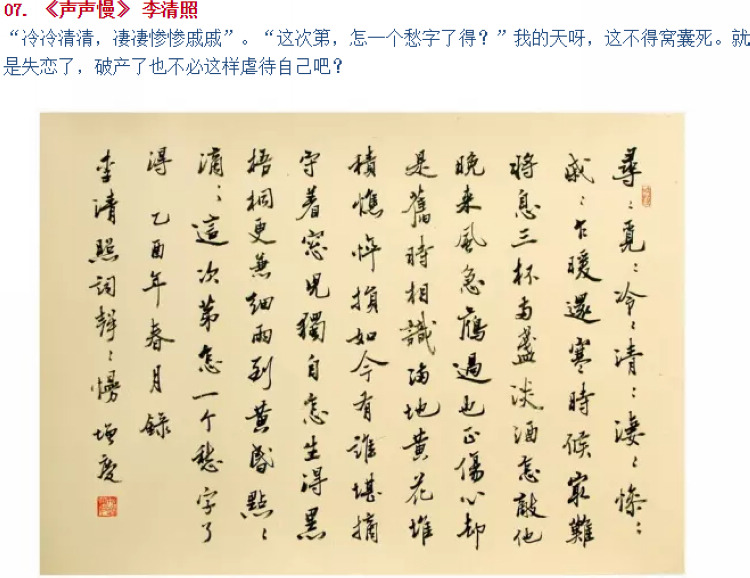 07. 《声声慢》 李清照
“冷冷清清，凄凄惨惨戚戚”。“这次第，怎一个愁字了得？”我的天呀，这不得窝囊死。就
是失恋了，破产了也不必这样虐待自己吧？
尋〻覓〻冷〻清〻淒〻慘〻
戚〻乍暖還寒時候最難
將息三杯兩盞淡酒怎敵他
晚来風急雁過也正傷心却
是舊時相識滿地黃花堆
積憔悴損如今有誰堪摘
守着窗兒獨自怎生得黑
梧桐更兼細雨到黃昏點〻
滴〻這次第怎一个愁字了
得 乙酉年春月錄
李清照詞聲〻慢 增慶